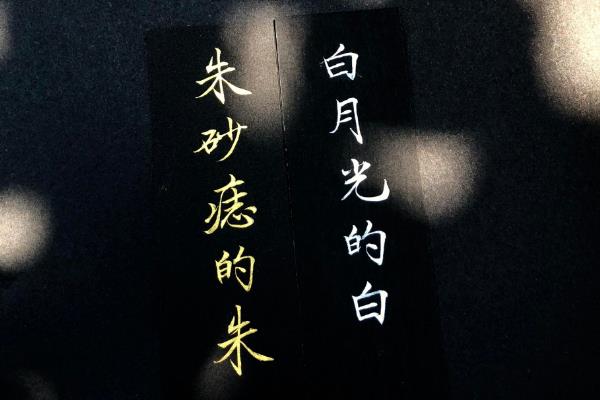 白月光的白
朱砂痣的朱